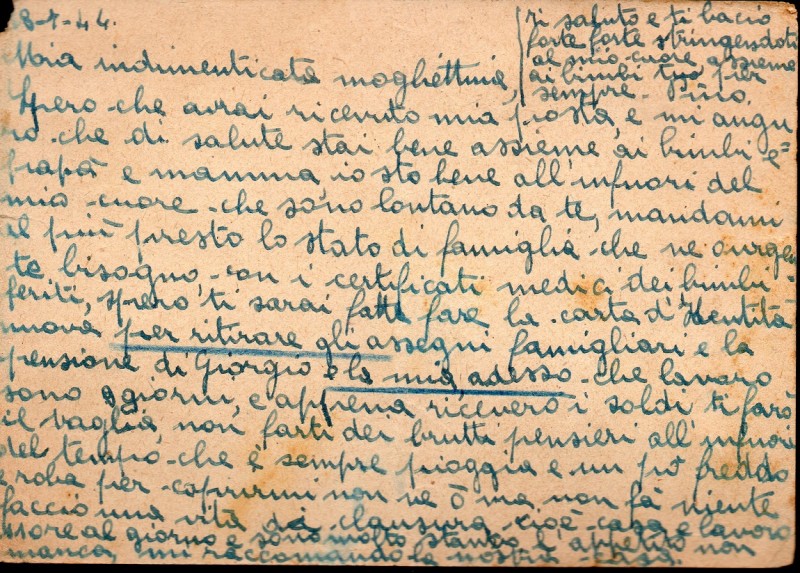 8-1-44.
Mia indimenticata moghettina,
Spero che avrai ricevuto mia posta, e mi augu
ro che di salute stai bene assieme ai bimbi e
papà e mamma, io sto bene all'infuori del
mio cuore che sono lontano da te, mandami
al più presto lo stato di famiglia che ne ò urgen
te bisogno, con i certificati medici dei bimbi
feriti, spero ti sarai fatta fare la carta d'Identità
nuova per ritirare gli assegni famigliari e la
pensione di Giorgio e la mia, adesso che lavoro
sono giorni, e appena riceverò i soldi ti farò
il vaglia, non farti dei brutti pensieri all'infuori
del tempo che è sempre pioggia e un pò freddo
e roba per coprirmi non ne ò ma non fà niente
faccio una vita di clausura cioè casa e lavoro
ore al giorno e sono molto stanco, l'appetito non
manca, mi raccomando la nostra casa.
ti saluto e ti bacio
forte forte stringendoti
al mio cuore assieme
ai bimbi tuo per
sempre Pino